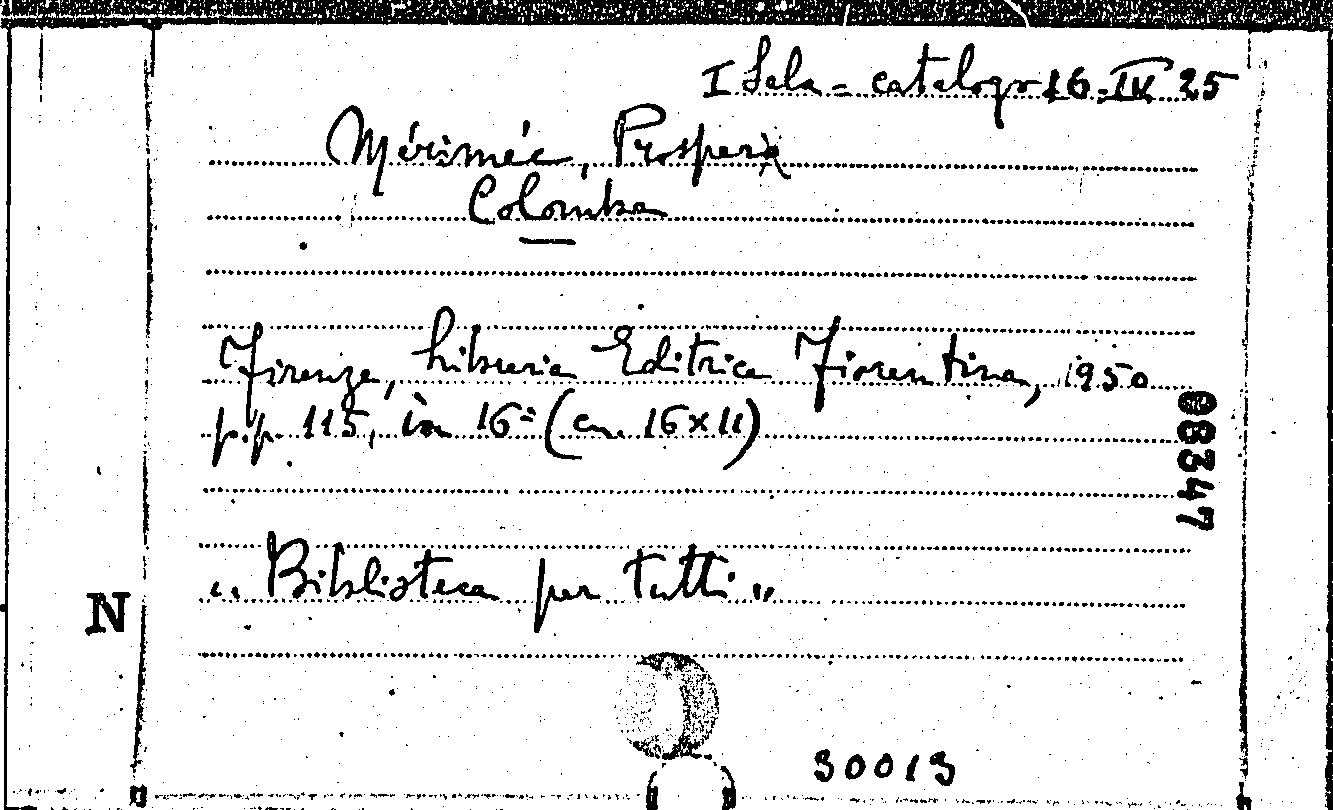 I Sala - catalogo 16-IV 25
Mérimée, Prosper
Colomba
Firenze, Libreria Editrice Fiorentina, 1950
pp. 115, in 16° (cm. 16x11)
08347
„ Biblioteca per tutti „
N
30013